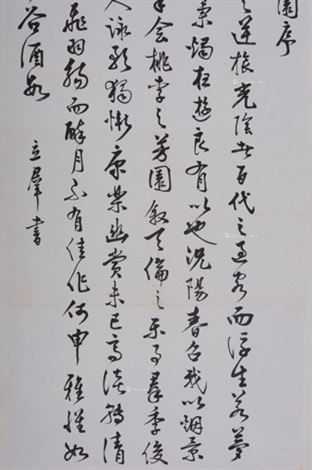 園序
之逆旅光陰者百代之過客而浮生若夢
秉燭夜遊良有以也況陽春召我以煙景
會桃李之芳園敘天倫之樂事羣季俊
人詠歌獨慚康樂幽賞未已高談轉清
飛羽觴而醉月不有佳作何申雅懷如
谷酒數
立羣書